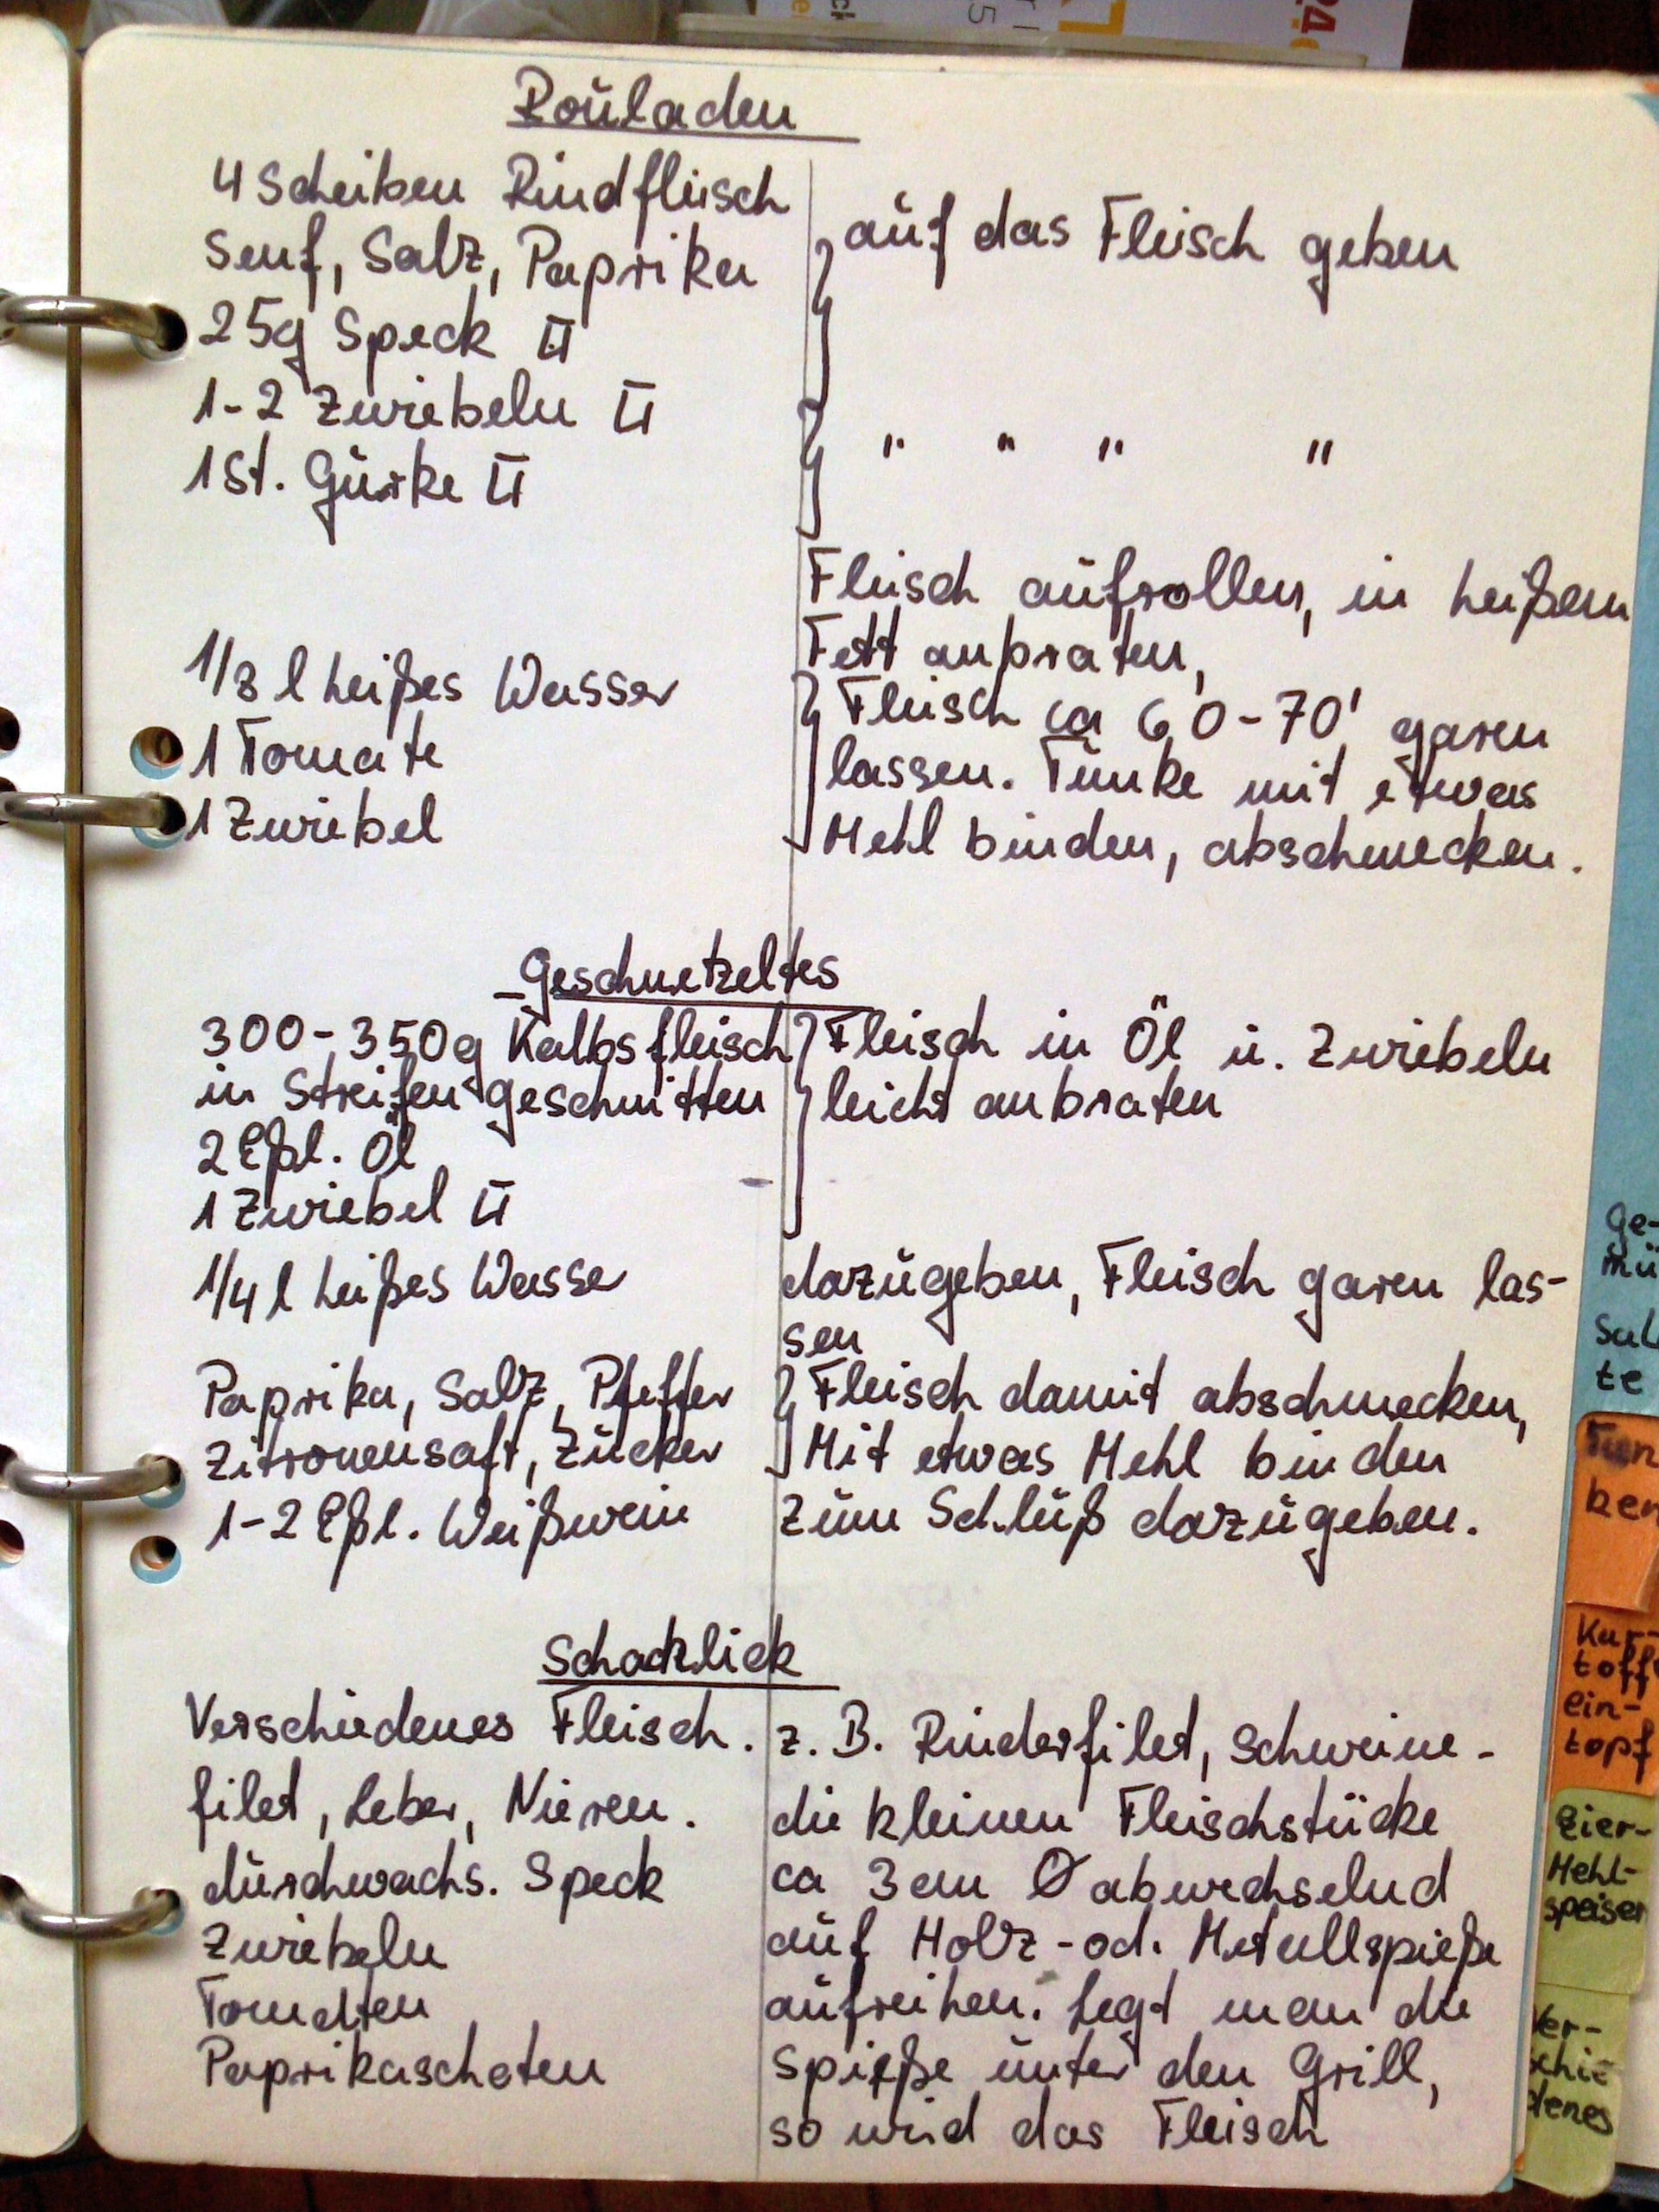 Rouladen
4 Scheiben Rindfleisch
Senf, Salz, Paprika
auf das Fleisch geben
25g Speck
1-2 Zwiebeln
1 St. Gurke
" " " "
Fleisch aufrollen, in heißem
Fett anbraten,
1/8 l heißes Wasser
1 Tomate
1 Zwiebel
Fleisch ca 60-70' garen
lassen. Tunke mit etwas
Mehl binden, abschmecken.
Geschnetzeltes
300-350g Kalbsfleisch
in Streifen geschnitten
2 Eßl. Öl
1 Zwiebel
Fleisch in Öl u. Zwiebeln
leicht anbraten
1/4 l heißes Wasse
dazugeben, Fleisch garen las-
sen
Paprika, Salz, Pfeffer
Zitronensaft, Zucker
Fleisch damit abschmecken,
Mit etwas Mehl binden
1-2 Eßl. Weißwein
zum Schluß dazugeben.
Schacklick
Verschiedenes Fleisch. z. B. Rinderfilet, Schweine-
filet, Leber, Nieren.
durchwachs. Speck
Zwiebeln
Tomaten
Paprikaschoten
die kleinen Fleischstücke
ca 3 cm Ø abwechselnd
auf Holz-od. Metallspieße
aufreihen. Legt man die
Spieße unter den Grill,
so wird das Fleisch
Ge-
mü
Sal
te
Tun
ken
Kar-
toff
ein-
topf
Eier-
Mehl-
speisen
Ver-
schie
denes